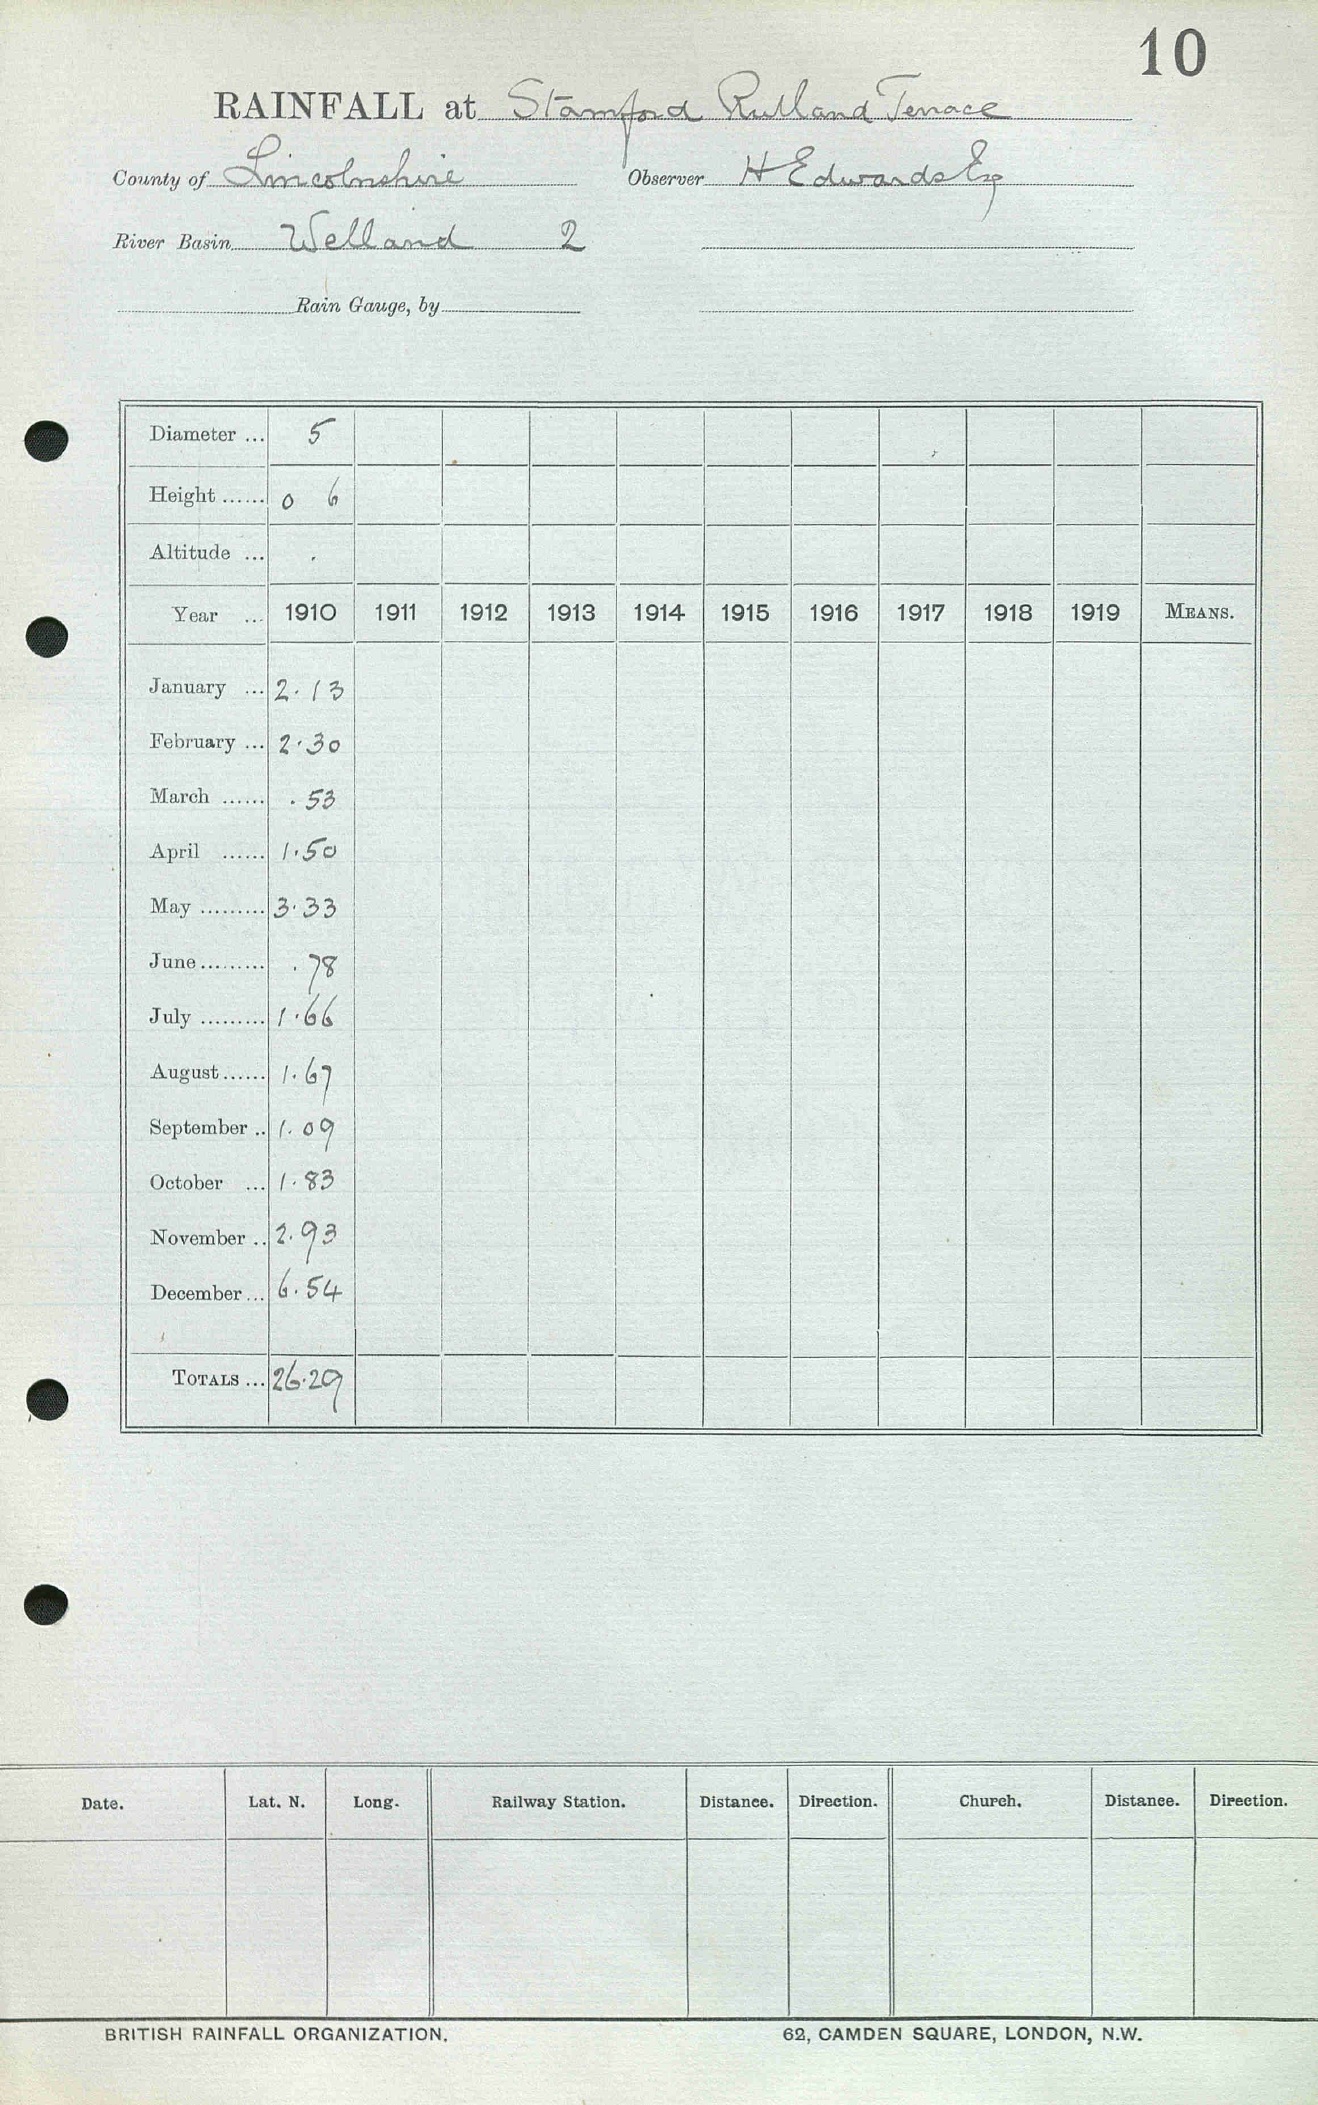 10
RAINFALL at Stamford Rutland Terrace
County of Lincolnshire Observer H Edwards Esq
River Basin Welland 2
Rain Gauge, by
Diameter ... 5
Height ...... 0 6
Altitude ... .
Year ... 1910 1911 1912 1913 1914 1915 1916 1917 1918 1919 MEANS.
January ... 2.13
February ... 2.30
March ...... .53
April ...... 1.50
May ......... 3.33
June ......... .78
July ......... 1.66
August ...... 1.67
September .. 1.09
October ... 1.83
November .. 2.93
December ... 6.54
TOTALS ... 26.29
Date. Lat. N. Long. Railway Station. Distance. Direction. Church. Distance. Direction.
BRITISH RAINFALL ORGANIZATION. 62, CAMDEN SQUARE, LONDON, N.W.